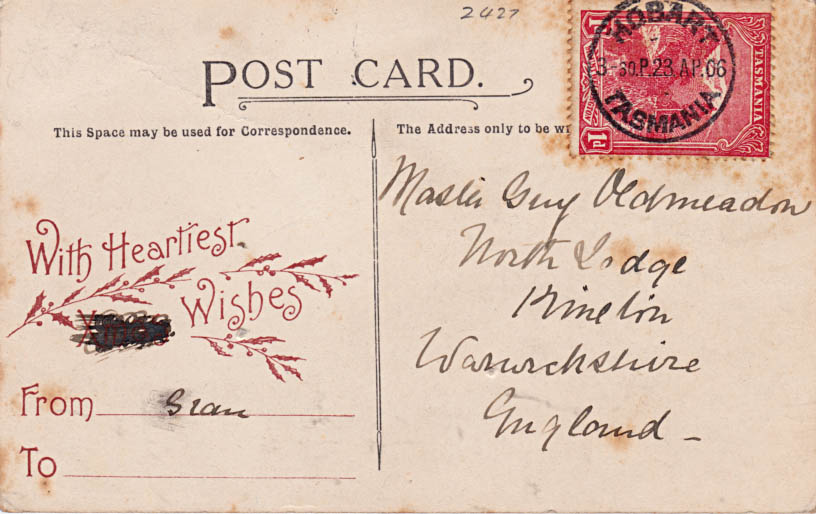 2427
POST CARD.
This Space may be used for Correspondence.
The Address only to be
1d TASMANIA
HOBART
3-30.P.23.AP.06
TASMANIA
1d
Master Guy Oldmeadow
North Lodge
Kineton
Warwickshire
England -
With Heartiest
Wishes
From Gran
To